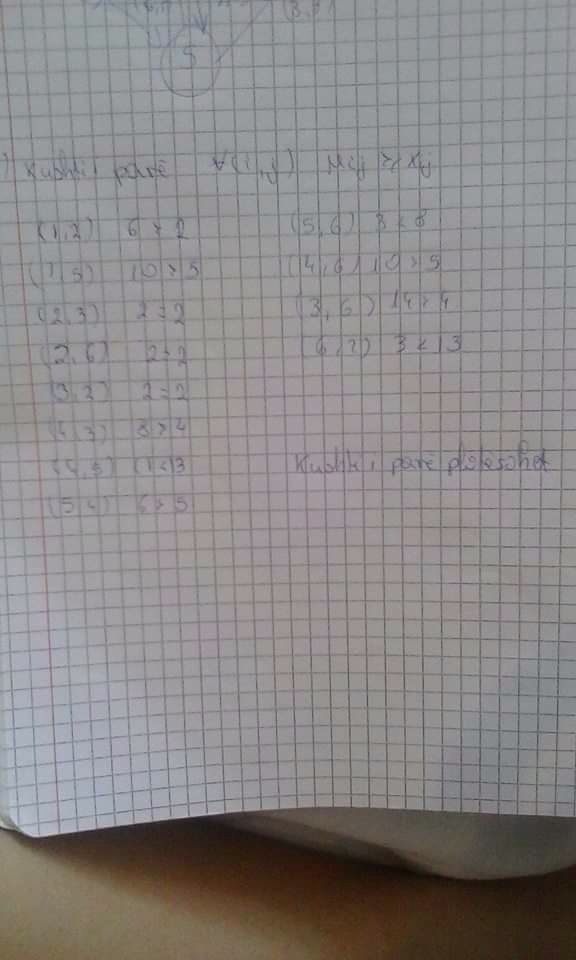 5
(3,8)
Kushti i parë ∀(i,j) Mij ≥ Xij
(1,2) 6 > 2
10 > 5
(2,3) 2 = 2
(2,6) 2 = 2
(3,2) 2 = 2
(4,3) 8 > 4
(5,4) 6 > 5
(5,6) 3 < 8
(4,6) 10 > 5
(3,6) 14 > 4
3 < 13
Kushti i parë plotësohet